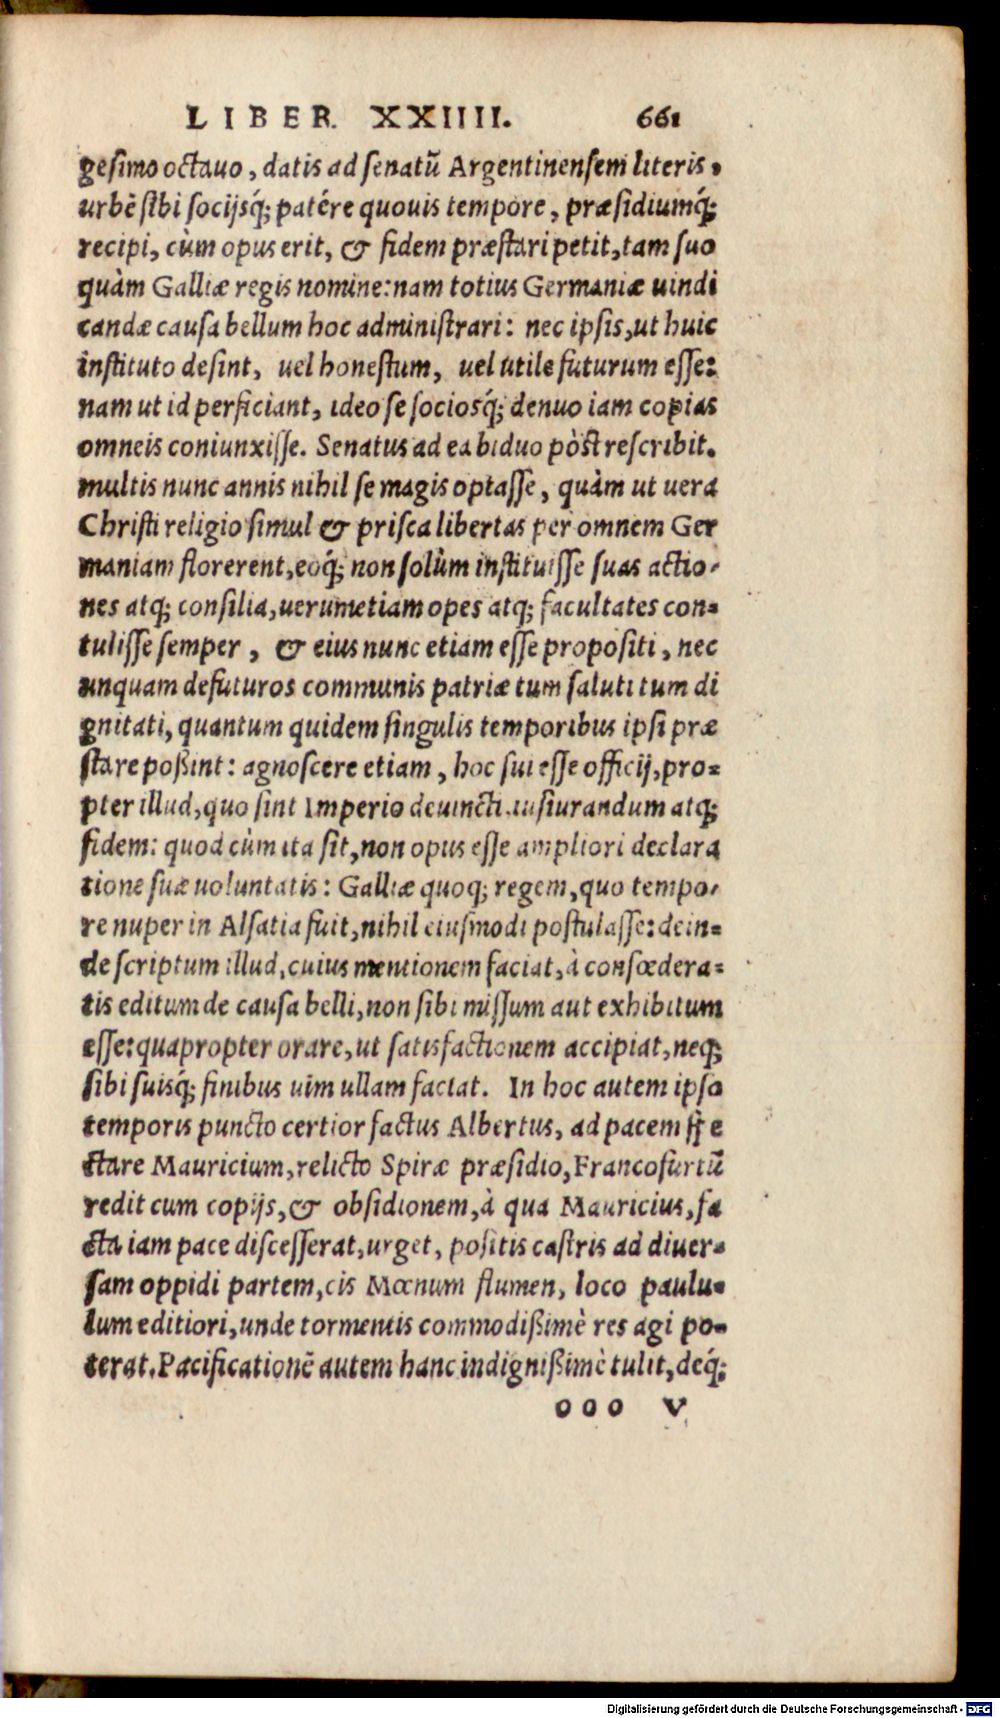 LIBER XXIIII. 661
gesimo octauo, datis ad senatū Argentinensem literis,
urbē sibi socijsq́; patére quouis tempore, præsidiumq́;
recipi, cùm opus erit, & fidem præstari petit, tam suo
quàm Galliæ regis nomine: nam totius Germaniæ uindi
candæ causa bellum hoc administrari: nec ipsis, ut huic
instituto desint, uel honestum, uel utile futurum esse:
nam ut id perficiant, ideo se sociosq́; denuo iam copias
omneis coniunxisse. Senatus ad ea biduo pòst rescribit.
multis nunc annis nihil se magis optasse, quàm ut uera
Christi religio simul & prisca libertas per omnem Ger
maniam florerent, eoq́; non solùm instituisse suas actio-
nes atq; consilia, uerumetiam opes atq; facultates con-
tulisse semper, & eius nunc etiam esse propositi, nec
unquam defuturos communis patriæ tum saluti tum di
gnitati, quantum quidem singulis temporibus ipsi præ
stare poßint: agnoscere etiam, hoc sui esse officij, pro-
pter illud, quo sint Imperio deuincti iusiurandum atq;
fidem: quod cùm ita sit, non opus esse ampliori declara
tione suæ uoluntatis: Galliæ quoq; regem, quo tempo-
re nuper in Alsatia fuit, nihil eiusmodi postulasse: dein-
de scriptum illud, cuius mentionem faciat, à confœdera-
tis editum de causa belli, non sibi missum aut exhibitum
esse: quapropter orare, ut satisfactionem accipiat, neq;
sibi suisq́; finibus uim ullam faciat. In hoc autem ipso
temporis puncto certior factus Albertus, ad pacem spe
ctare Mauricium, relicto Spiræ præsidio, Francofurtū
redit cum copijs, & obsidionem, à qua Mauricius, fa
cta iam pace discesserat, urget, positis castris ad diuer-
sam oppidi partem, cis Mœnum flumen, loco paulu-
lum editiori, unde tormentis commodißimè res agi po-
terat. Pacificationē autem hanc indignißimè tulit, deq́;
ooo v
Digitalisierung gefördert durch die Deutsche Forschungsgemeinschaft - DFG